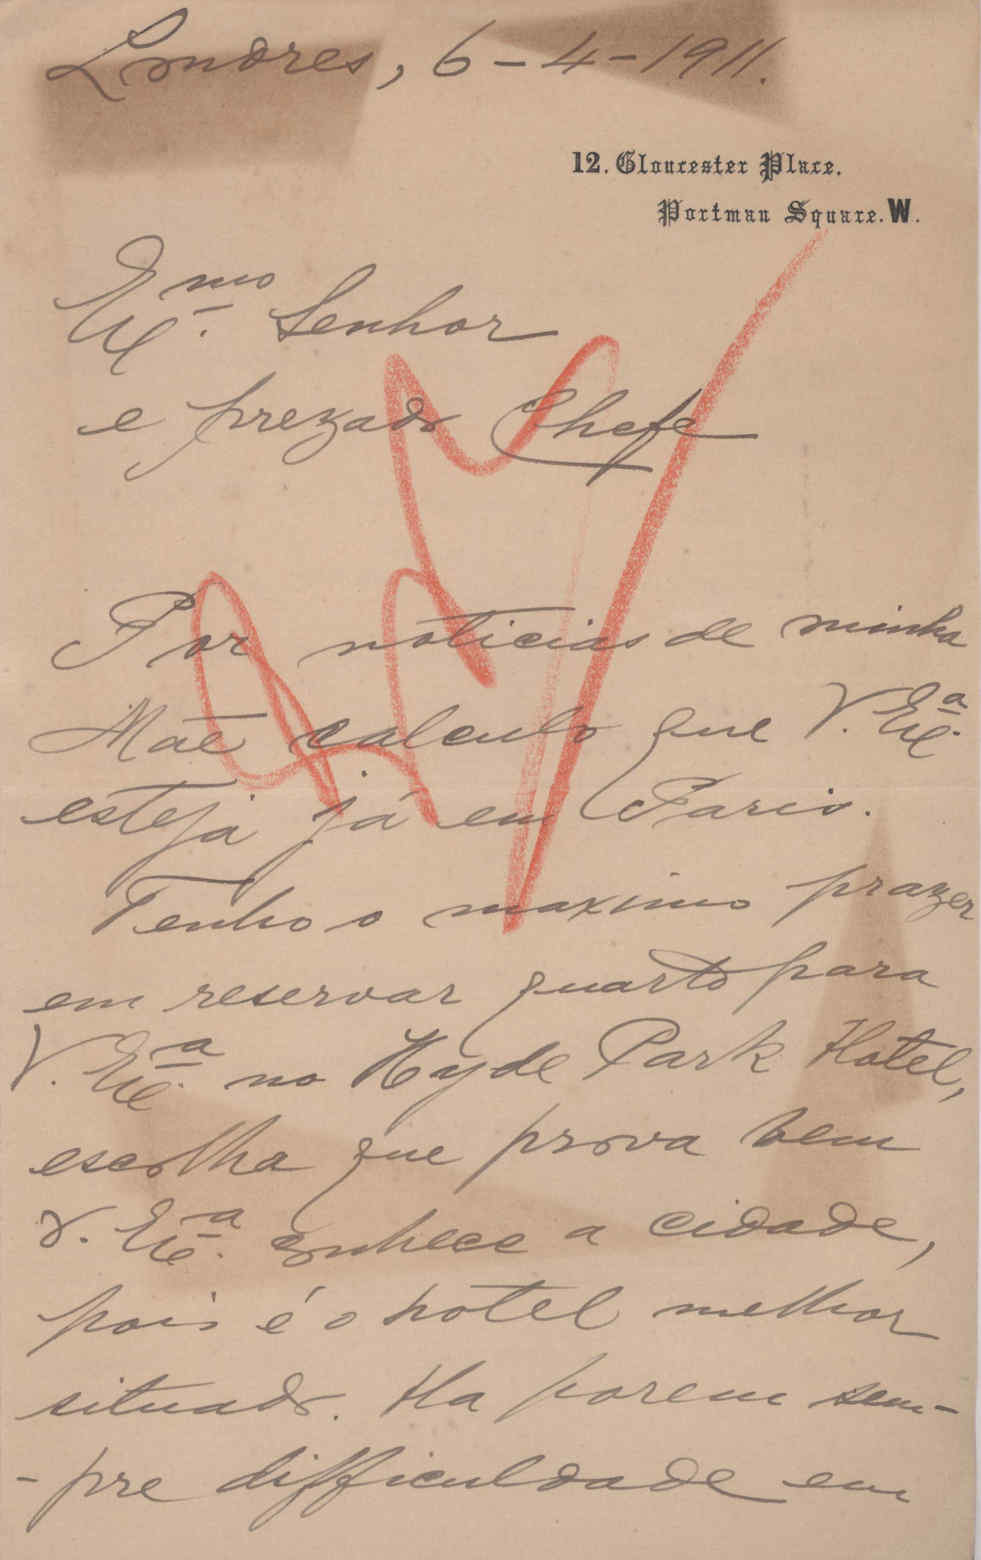 Londres, 6-4-1911.
12. Gloucester Place.
Portman Square. W.
Exmo. Senhor
e prezado Chefe
Por noticias de minha
Mãe calculo que V. Exª.
esteja já em Paris.
Tenho o maximo prazer
em reservar quarto para
V. Exª. no Hyde Park Hotel,
escolha que prova bem
V. Exª. conhece a cidade,
pois é o hotel melhor
situado. Ha porem sem-
-pre difficuldade em